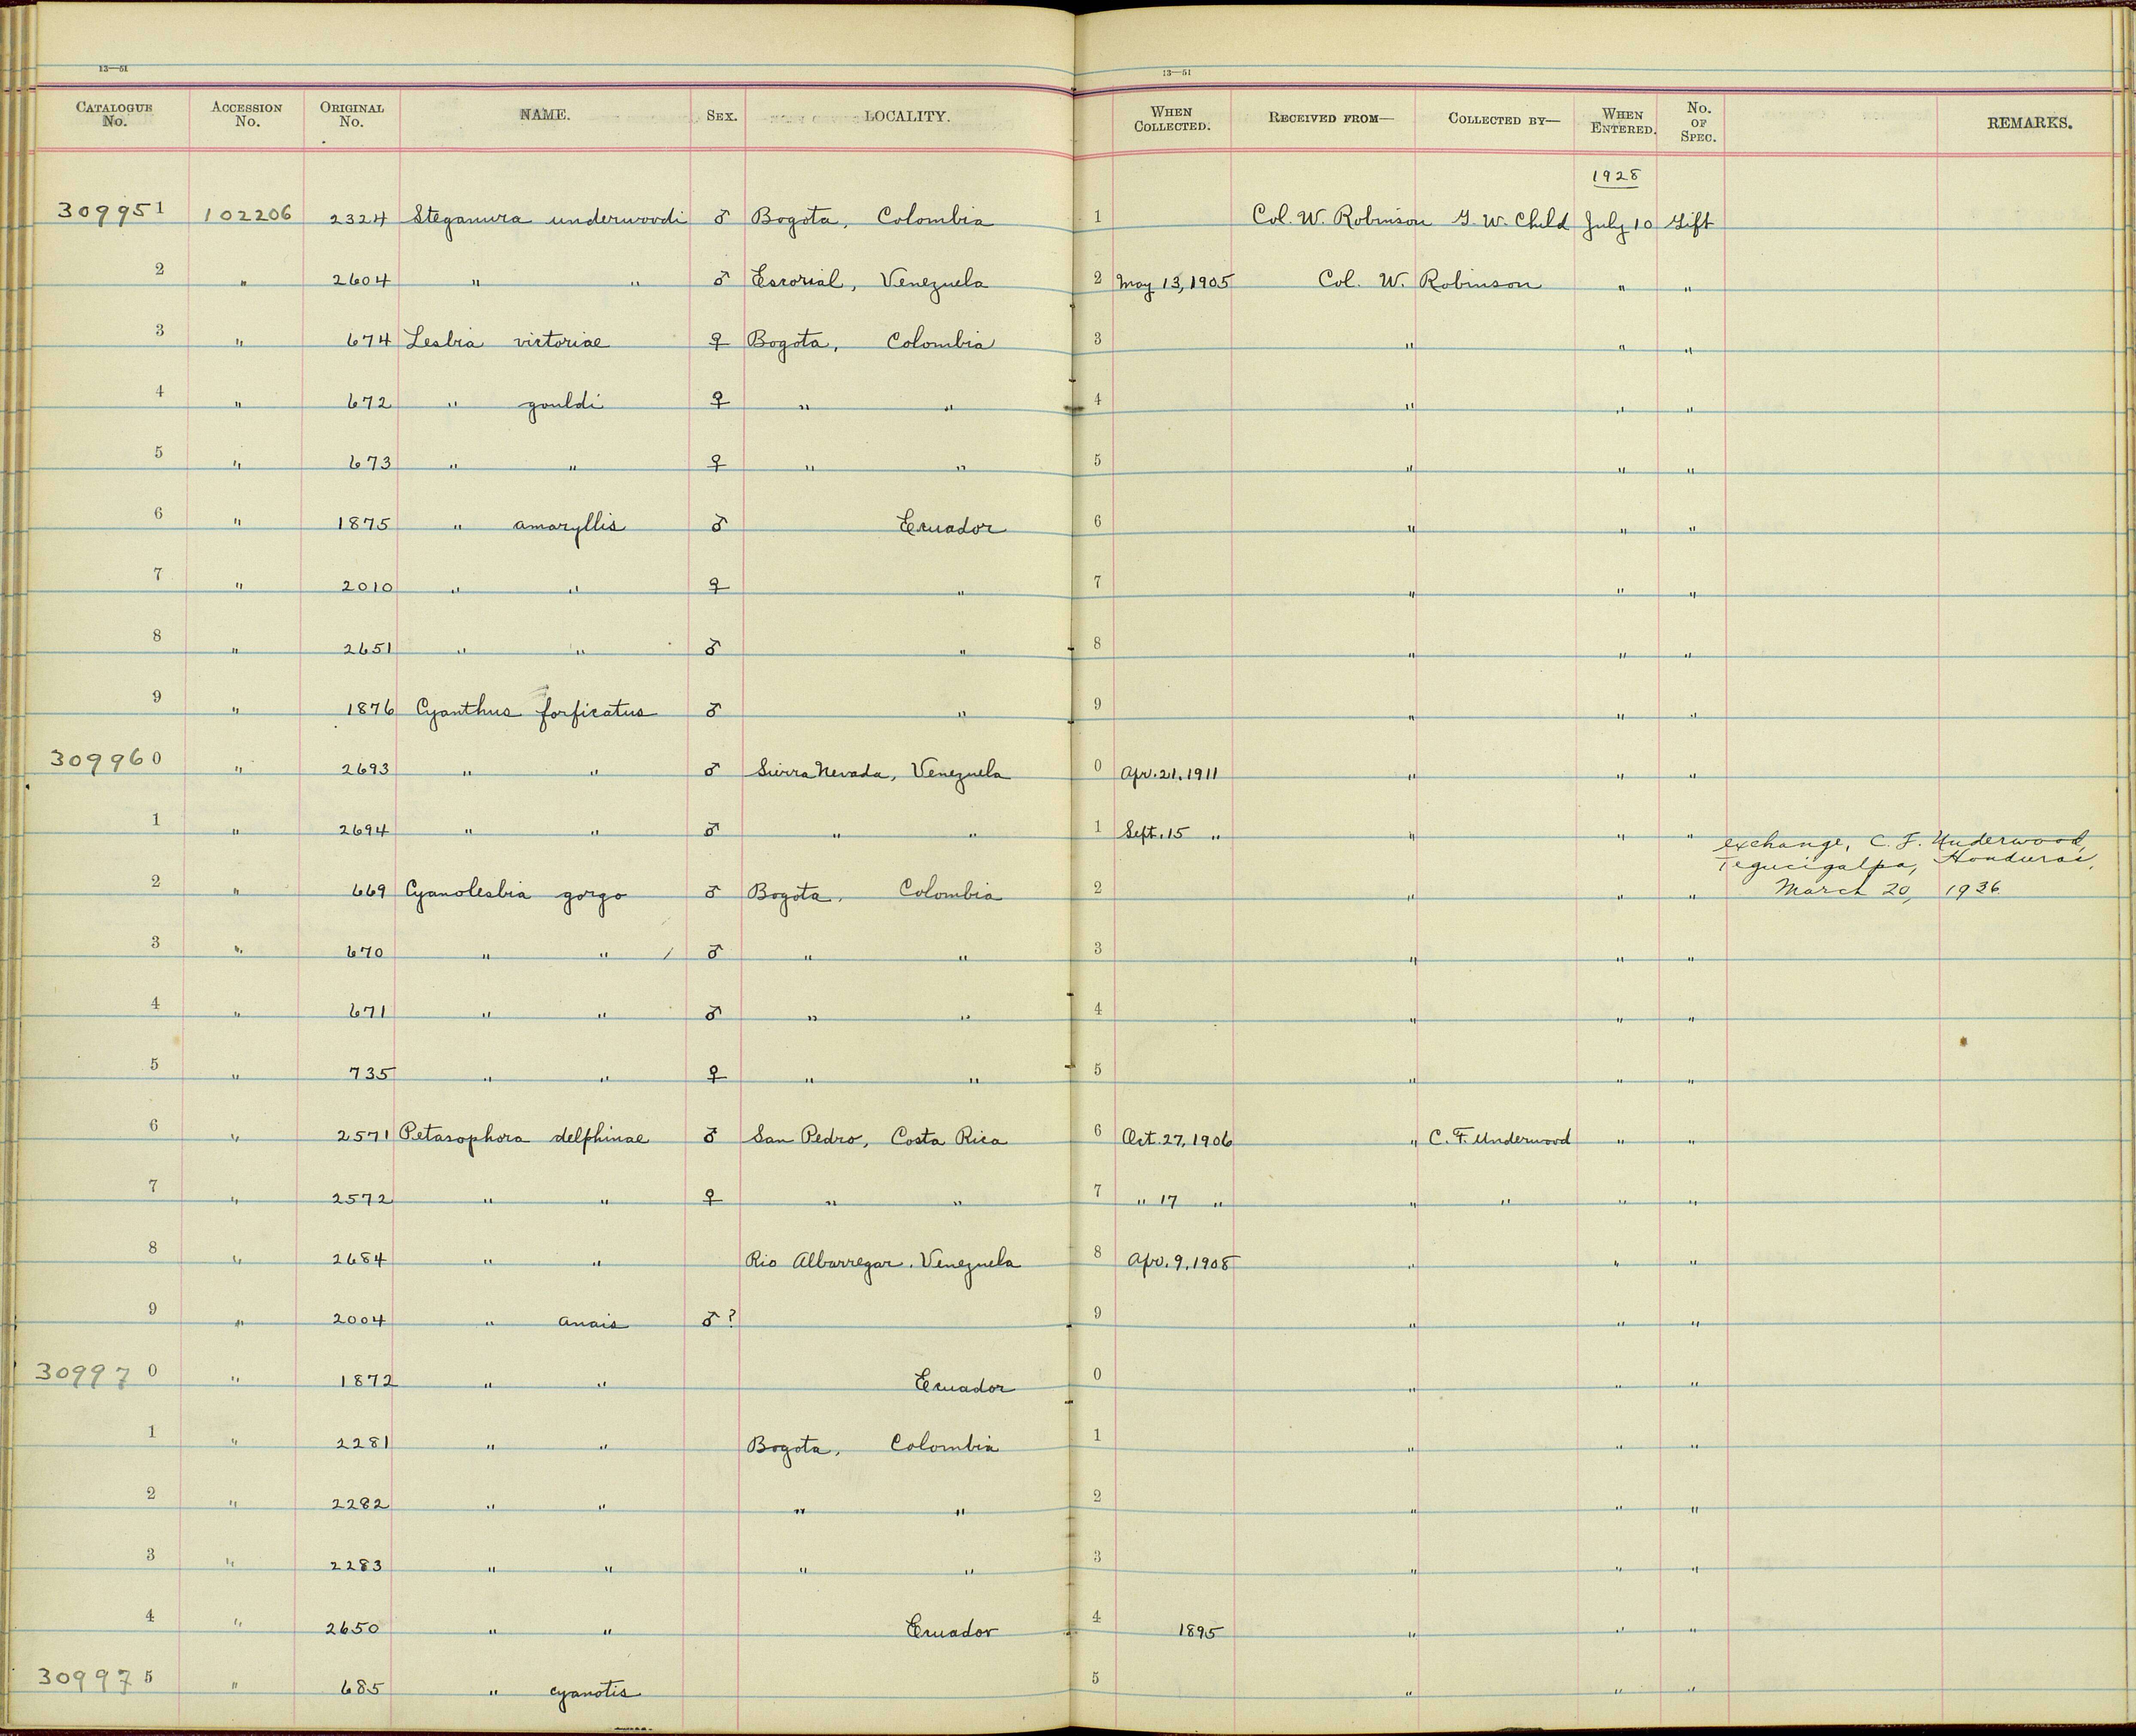 13—51 13—51
CATALOGUE No. ACCESSION No. ORIGINAL No. NAME. SEX. LOCALITY. WHEN COLLECTED. RECEIVED FROM— COLLECTED BY— WHEN ENTERED. No. OF SPEC. REMARKS.
1928
309951 102206 2324 Steganura underwoodi ♂ Bogota, Colombia 1 Col. W. Robinson G. W. Child July 10 Gift
2 " 2604 " " ♂ Escorial, Venezuela 2 May 13, 1905 Col. W. Robinson " "
3 " 674 Lesbia victoriae ♀ Bogota, Colombia 3 " " "
4 " 672 " gouldi ♀ " " 4 " " "
5 " 673 " " ♀ " " 5 " " "
6 " 1875 " amaryllis ♂ Ecuador 6 " " "
7 " 2010 " " ♀ " 7 " " "
8 " 2651 " " ♂ " 8 " " "
9 " 1876 Cyanthus forficatus ♂ " 9 " " "
309960 " 2693 " " ♂ Sierra Nevada, Venezuela 0 Apr. 21, 1911 " " "
1 " 2694 " " ♂ " " 1 Sept. 15 " " " "
exchange, C. F. Underwood,
Tegucigalpa, Honduras,
2 " 669 Cyanolesbia gorgo ♂ Bogota, Colombia 2 " " " March 20, 1936
3 " 670 " " ♂ " " 3 " " "
4 " 671 " " ♂ " " 4 " " "
5 " 735 " " ♀ " " 5 " " "
6 " 2571 Petasophora delphinae ♂ San Pedro, Costa Rica 6 Oct. 27, 1906 " C. F. Underwood " "
7 " 2572 " " ♀ " " 7 " 17 " " " " "
8 " 2684 " " Rio Albarregar, Venezuela 8 Apr. 9, 1908 " " "
9 " 2004 " anais ♂? 9 " " "
309970 " 1872 " " Ecuador 0 " " "
1 " 2281 " " Bogota, Colombia 1 " " "
2 " 2282 " " " " 2 " " "
3 " 2283 " " " " 3 " " "
4 " 2650 " " Ecuador 4 1895 " " "
309975 " 685 " cyanotis 5 " " "